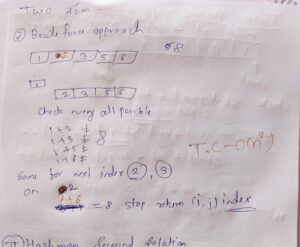 Two Sum -
① Brute force approach
1 2 3 5 6 8
1
2 3 5 6
Check every all possible
1+2 ≠
1+3 ≠ 8
1+5 ≠
1+6 ≠
T.C - O(n²)
Same for next index ②, ③
on 2
2+6 = 8 stop return (i, j) index
Hashmap Second Solution